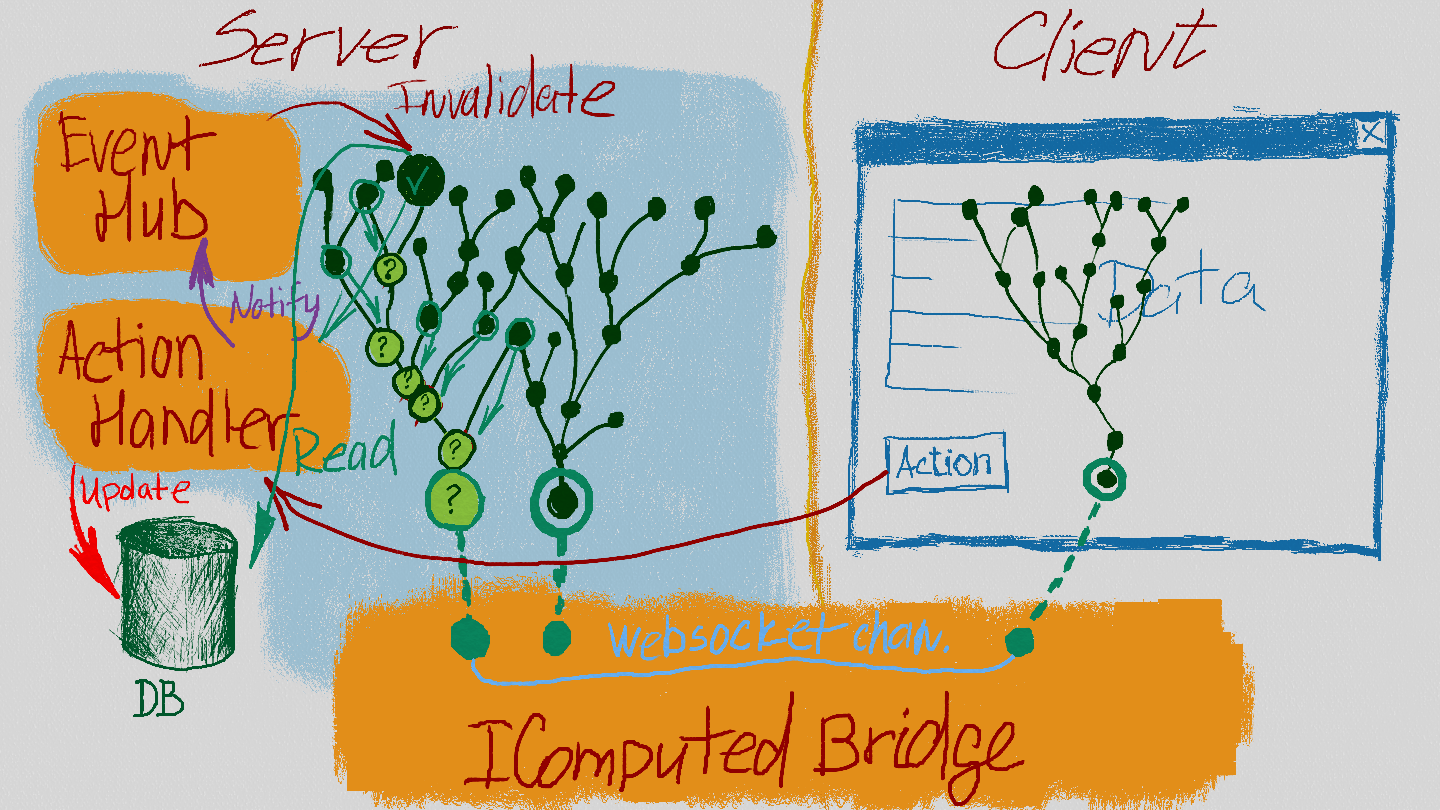 Server
Client
Invalidate
Event
Hub
Notify
Action
Handler
Read
Update
DB
?
?
?
?
?
?
Data
Action
X
Websocket chan.
IComputed Bridge